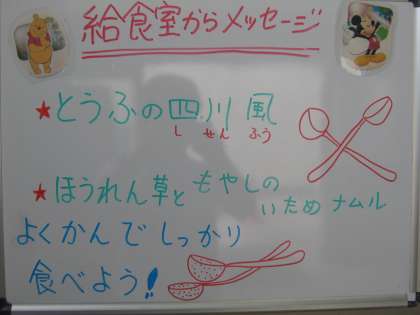 給食室からメッセージ
★とうふの四川風
し せん ふう
★ほうれん草ともやしの
いためナムル
よくかんでしっかり
食べよう!